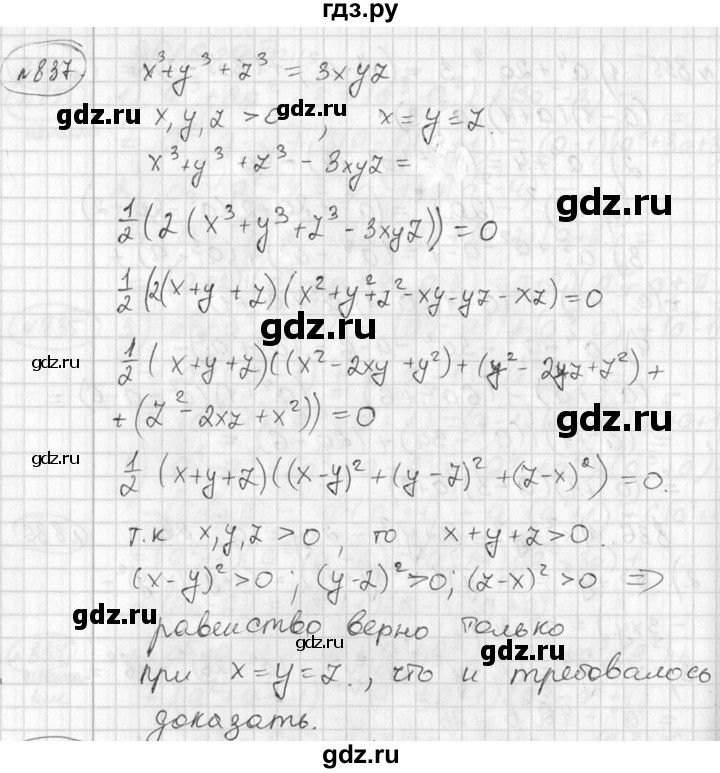 гдз.ру
№837.
x³+y³+z³ = 3xyz
gdz.ru gdz.ru
x, y, z > 0, x=y=z.
x³+y³+z³ - 3xyz =
gdz.ru
½(2(x³+y³+z³-3xyz))=0
gdz.ru
½(2(x+y+z)(x²+y²+z²-xy-yz-xz)=0
gdz.ru
gdz.ru
½(x+y+z)((x²-2xy+y²)+(y²-2yz+z²)+
+(z²-2xz+x²))=0
gdz.ru
gdz.ru
½(x+y+z)((x-y)²+(y-z)²+(z-x)²)=0.
т.к x, y, z >0, то x+y+z>0.
gdz.ru
(x-y)²>0; (y-z)²>0; (z-x)²>0 =>
gdz.ru
равенство верно только
gdz.ru
gdz.ru
при x=y=z., что и требовалось
доказать.
gdz.ru